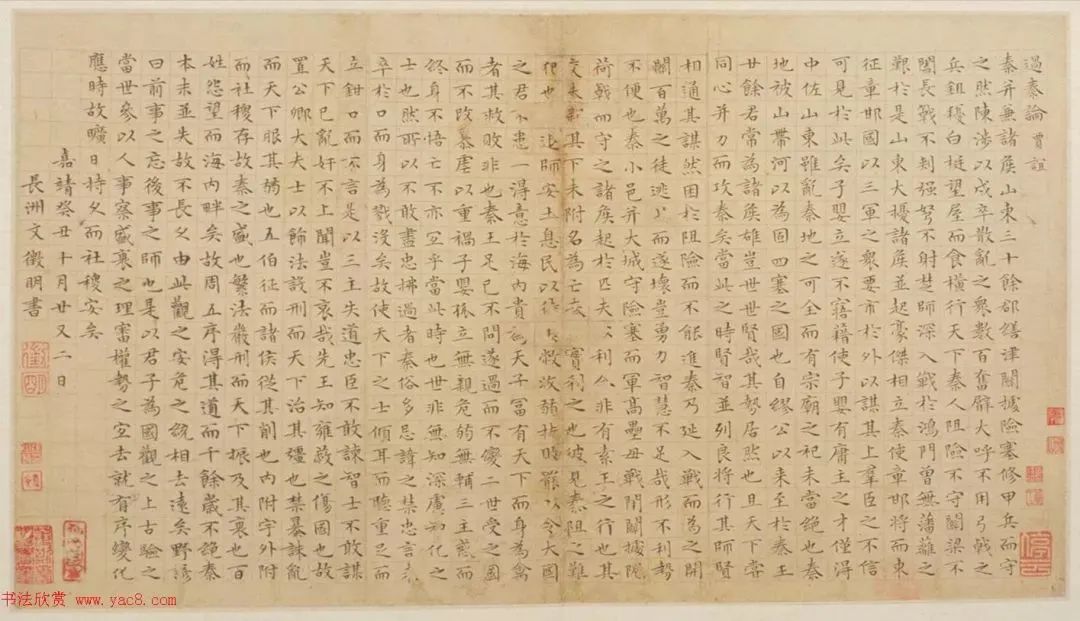 過秦論 賈誼
秦并兼諸矦山東三十餘郡繕津關據險塞修甲兵而守
之然陳涉以戍卒散亂之衆數百奮臂大呼不用弓戟之
兵鉏耰白梃望屋而食橫行天下秦人阻險不守關梁不
闔長戟不刺强弩不射楚師深入戰於鴻門曾無藩蘺之
艱於是山東大擾諸矦並起豪傑相立秦使章邯將而東
征章邯國以三軍之衆要市於外以謀其上羣臣之不信
可見於此矣子嬰立遂不寤籍使子嬰有庸主之才僅得
中佐山東雖亂秦地之可全而有宗廟之祀未當絕也秦
地被山帶河以為固四塞之國也自繆公以來至於秦王
廿餘君常為諸矦雄豈世世賢哉其勢居然也且天下嘗
同心并力而攻秦矣當此之時賢智並列良將行其師賢
相通其謀然困於阻險而不能進秦乃延入戰而為之開
關百萬之徒逃北而遂壞豈勇力智慧不足哉形不利勢
不便也秦小邑并大城守險塞而軍高壘毋戰閉關據阨
荷戟而守之諸矦起於匹夫以利合非有素王之行也其
交未親其下未附名為亡秦 實利之也彼見秦阻之難
犯也 退師安土息民以待 收弱扶罷以令大國
之君不患一得意於海內貴為天子富有天下而身為禽
者其救敗非也秦王足己不問遂過而不變二世受之因
而不改暴虐以重禍子嬰孤立無親危弱無輔三主惑而
終身不悟亡不亦宜乎當此時也世非無知深慮知化之
士也然所以不敢盡忠拂過者秦俗多忌諱之禁忠言未
卒於口而身為戮沒矣故使天下之士傾耳而聽重足而
立鉗口而不言是以三主失道忠臣不敢諫智士不敢謀
天下已亂奸不上聞豈不哀哉先王知雍蔽之傷國也故
置公卿大夫士以飾法設刑而天下治其彊也禁暴誅亂
而天下服其弱也五伯征而諸侯從其削也內守外附
而社稷存故秦之盛也繁法嚴刑而天下振及其衰也百
姓怨望而海內畔矣故周五序得其道而千餘歲不絕秦
本末並失故不長久由此觀之安危之統相去遠矣野諺
曰前事之忘後事之師也是以君子為國觀之上古驗之
當世參以人事察盛衰之理審權勢之宜去就有序變化
應時故曠日持久而社稷安矣
嘉靖癸丑十月廿又二日
長洲文徵明書
书法欣赏 www.yac8.com